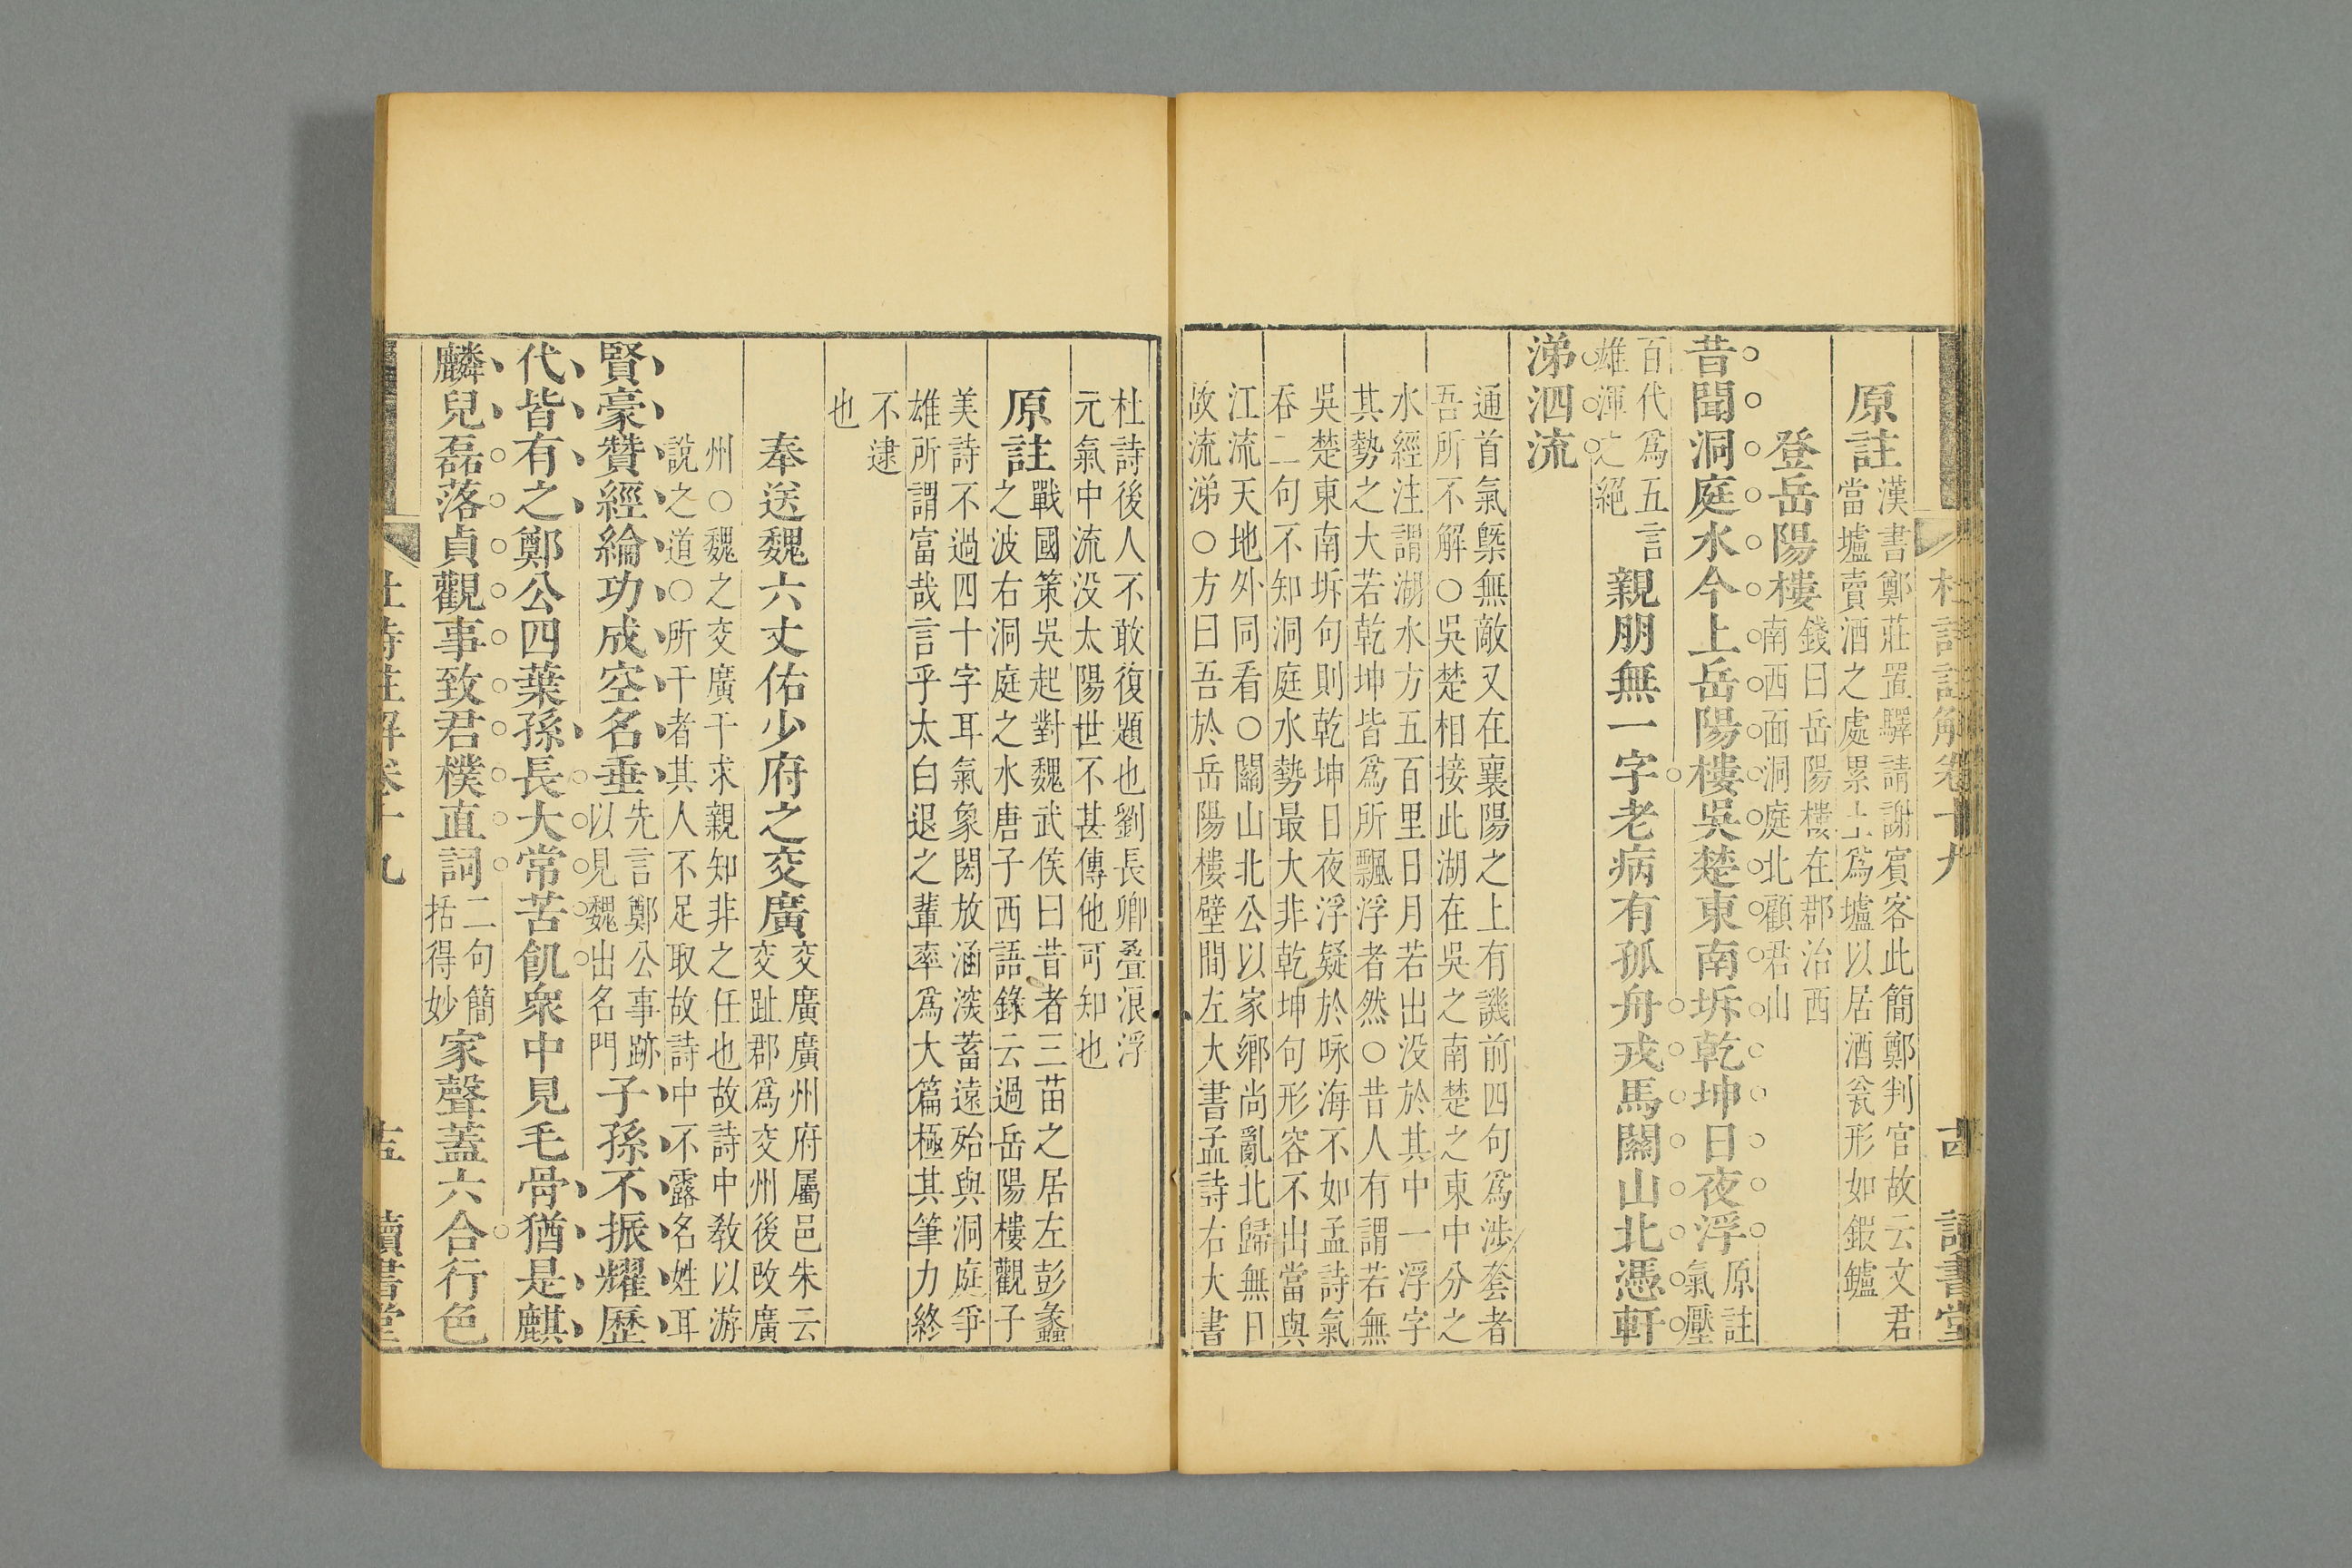 杜詩註解卷十九
讀書堂
原註漢書鄭莊置驛請謝賓客此簡鄭判官故云文君
當壚賣酒之處累土爲壚以居酒瓮形如鍜鑪
登岳陽樓錢曰岳陽樓在郡治西
南西面洞庭北顧君山
昔聞洞庭水今上岳陽樓吳楚東南坼乾坤日夜浮原註
氣壓
百代爲五言
雄渾之絕
親朋無一字老病有孤舟戎馬關山北憑軒
涕泗流
通首氣槩無敵又在襄陽之上有譏前四句爲涉套者
吾所不解○吳楚相接此湖在吳之南楚之東中分之
水經注謂湖水方五百里日月若出没於其中一浮字
其勢之大若乾坤皆爲所飄浮者然○昔人有謂若無
吳楚東南坼句則乾坤日夜浮疑於咏海不如孟詩氣
吞二句不知洞庭水勢最大非乾坤句形容不出當與
江流天地外同看○關山北公以家鄉尚亂北歸無日
故流涕○方曰吾於岳陽樓壁間左大書孟詩右大書
杜詩後人不敢復題也劉長卿叠浪浮
元氣中流没太陽世不甚傳他可知也
原註戰國策吳起對魏武侯曰昔者三苗之居左彭蠡
之波右洞庭之水唐子西語錄云過岳陽樓觀子
美詩不過四十字耳氣象閎放涵滀蓄遠殆與洞庭爭
雄所謂富哉言乎太白退之輩率爲大篇極其筆力終
不逮
也
奉送魏六丈佑少府之交廣交廣廣州府屬邑朱云
交趾郡爲交州後改廣
州○魏之交廣干求親知非之任也故詩中敎以游
說之道○所干者其人不足取故詩中不露名姓耳
賢豪贊經綸功成空名垂先言鄭公事跡
以見魏出名門
子孫不振耀歷
代皆有之鄭公四葉孫長大常苦飢衆中見毛骨猶是麒
麟兒磊落貞觀事致君樸直詞二句簡
括得妙
家聲蓋六合行色
杜詩註解卷十九
讀書堂